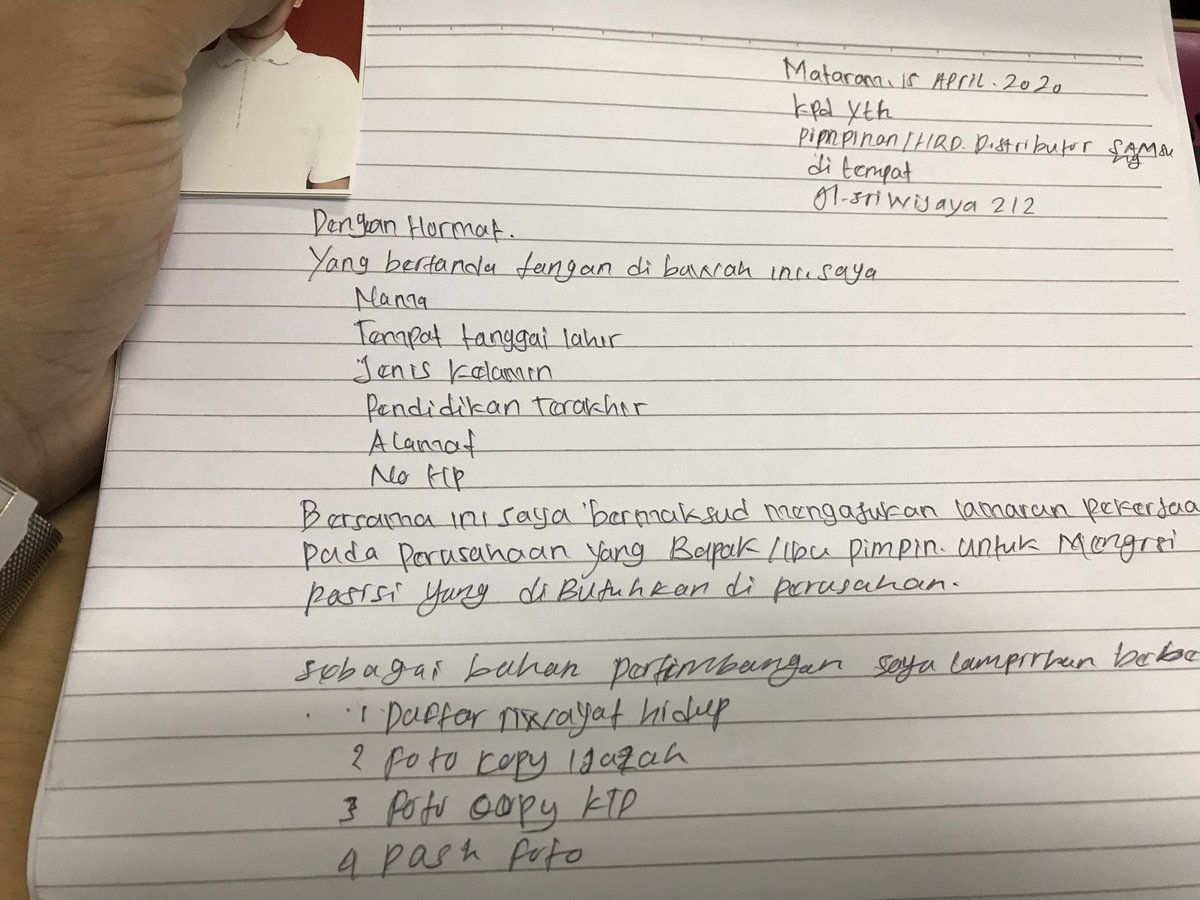 Mataram, 15 APRIL. 2020
kpd Yth
pipnpinan/HRD. Distributor SAMSU
di tempat
Jl-sriwijaya 212
Dengan Hormat.
Yang bertanda tangan di bawah ini. saya
Nama
Tempat tanggal lahir
Jenis Kelamin
Pendidikan Terakhir
Alamat
No HP
Bersama ini saya bermaksud mengajukan lamaran pekerjaa
pada perusahaan yang Bapak/ibu pimpin. untuk Mengisi
pasisi yang diButuhkan di perusahan.
sebagai bahan pertimbangan saya lampirkan bebe
1 Daftar riwayat hidup
2 foto copy ijazah
3 foto copy KTP
4 pash foto